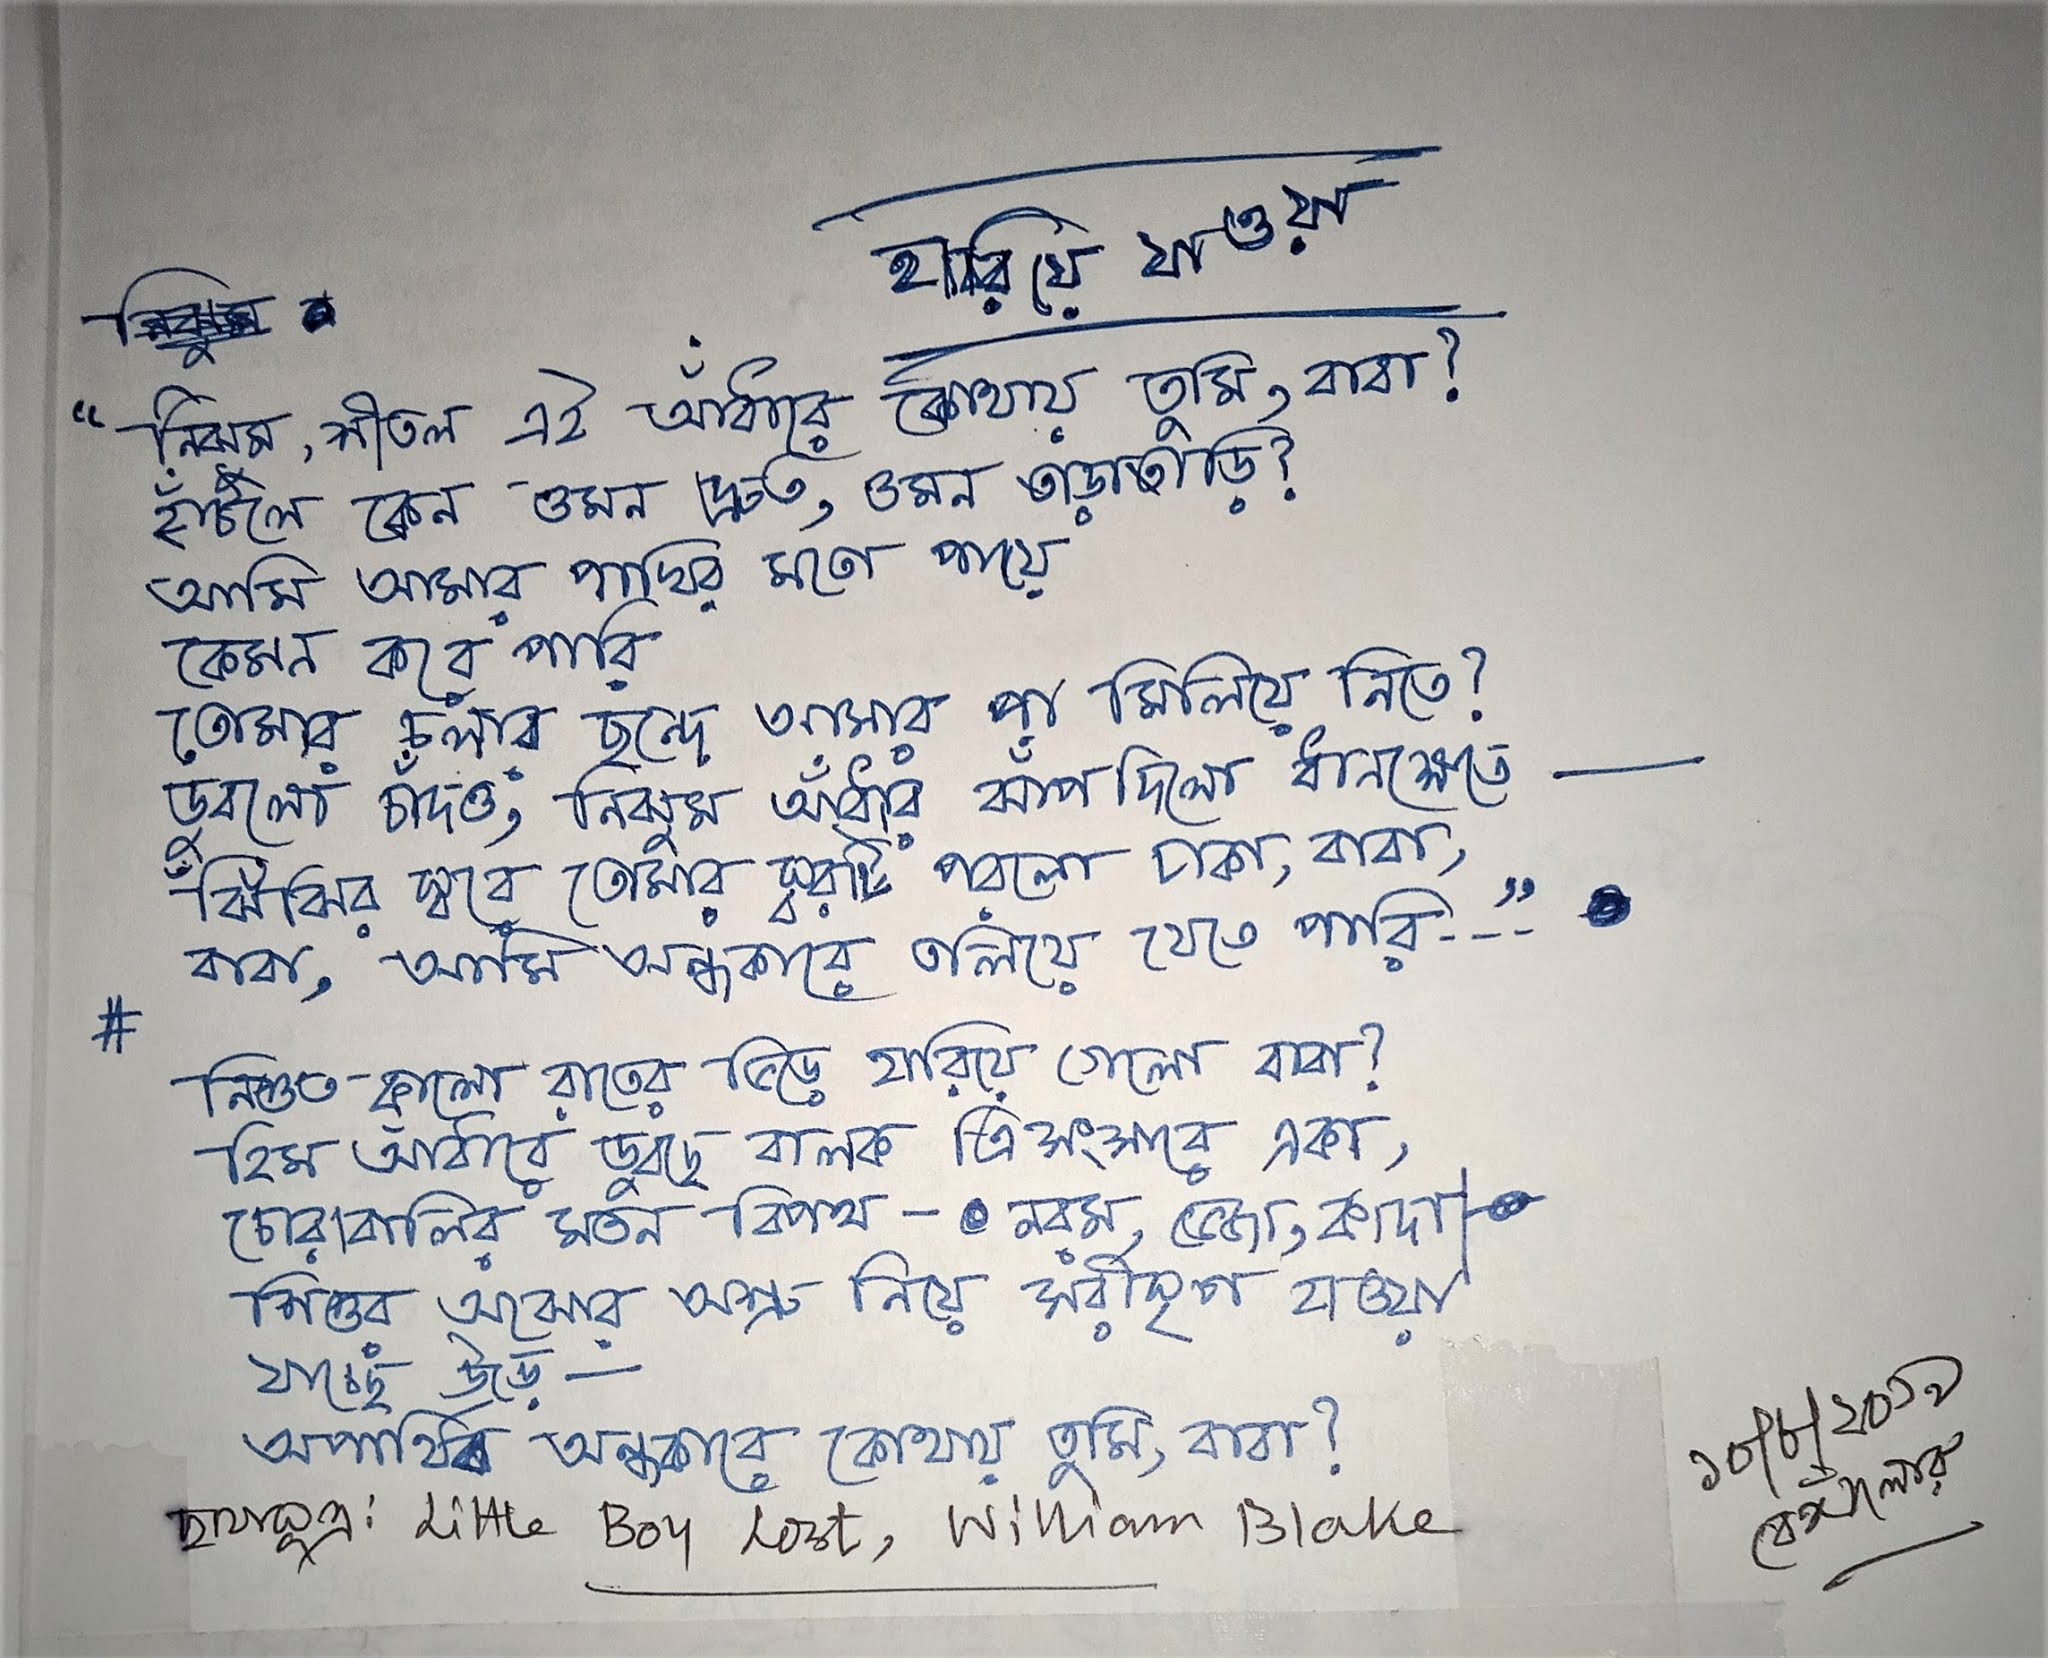 হারিয়ে যাওয়া
নিঝুম
“নিঝুম, শীতল এই আঁধারে কোথায় তুমি, বাবা?
হাঁটলে কেন ওমন দ্রুত, ওমন তাড়াতাড়ি?
আমি আমার পাখির মতো পায়ে
কেমন করে পারি
তোমার চলার ছন্দে আমার পা মিলিয়ে নিতে?
ডুবলো চাঁদও, নিঝুম আঁধার ঝাঁপ দিলো ধানক্ষেতে —
ঝিঁঝির স্বরে তোমার স্বরটি পরলো ঢাকা, বাবা,
বাবা, আমি অন্ধকারে তলিয়ে যেতে পারি----”
#
নিশুত কালো রাতের ভিড়ে হারিয়ে গেলো বাবা?
হিম আঁধারে ডুবছে বালক ত্রিসংসারে একা,
চোরাবালির মতন বিপথ – নরম, ভেজা, কাদা।
শিশুর অঝোর অশ্রু নিয়ে সরীসৃপ হাওয়া
যাচ্ছে উড়ে —
অপার্থিব অন্ধকারে কোথায় তুমি, বাবা?
ছায়াসূত্র: Little Boy Lost, William Blake
১০/৮/২০১৭
বেঙ্গালোর